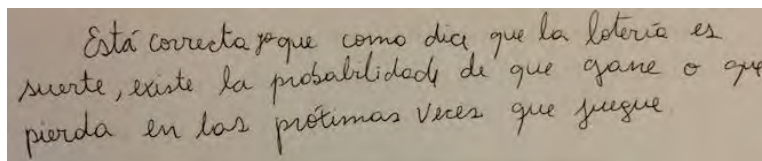 Está correcta ya que como dice que la lotería es
suerte, existe la probabilidade de que gane o que
pierda en las prótimas veces que juegue